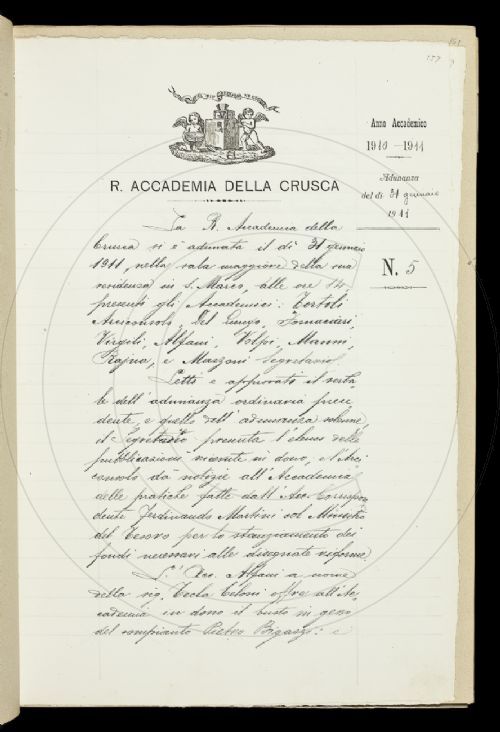 157
R. ACCADEMIA DELLA CRUSCA
Anno Accademico
1910-1911
Adunanza
del dì 31 gennaio
1911
N. 5
La R. Accademia della
Crusca si è adunata il dì 31 gennaio
1911, nella sala maggiore della sua
residenza in S. Marco, alle ore 14.
presenti gli Accademici: Tortoli
Arciconsolo, Del Lungo, Fornaciari,
Virgili, Alfani, Volpi, Manni,
Rajna, e Mazzoni Segretario.
Letti e approvati il verba
le dell'adunanza ordinaria prece
dente, e quello dell'adunanza solenne,
il Segretario presenta l'elenco delle
pubblicazioni ricevute in dono, e l'Arci
consolo dà notizie all'Accademia
delle pratiche fatte dall'Acc. Corrispon
dente Ferdinando Martini col Ministro
del Tesoro per lo stanziamento dei
fondi necessari alle disegnate riforme.
L'Acc. Alfani a nome
della sig. Tecla offre all'Ac
cademia in dono il busto in gesso
del compianto Pietro Bigazzi: e